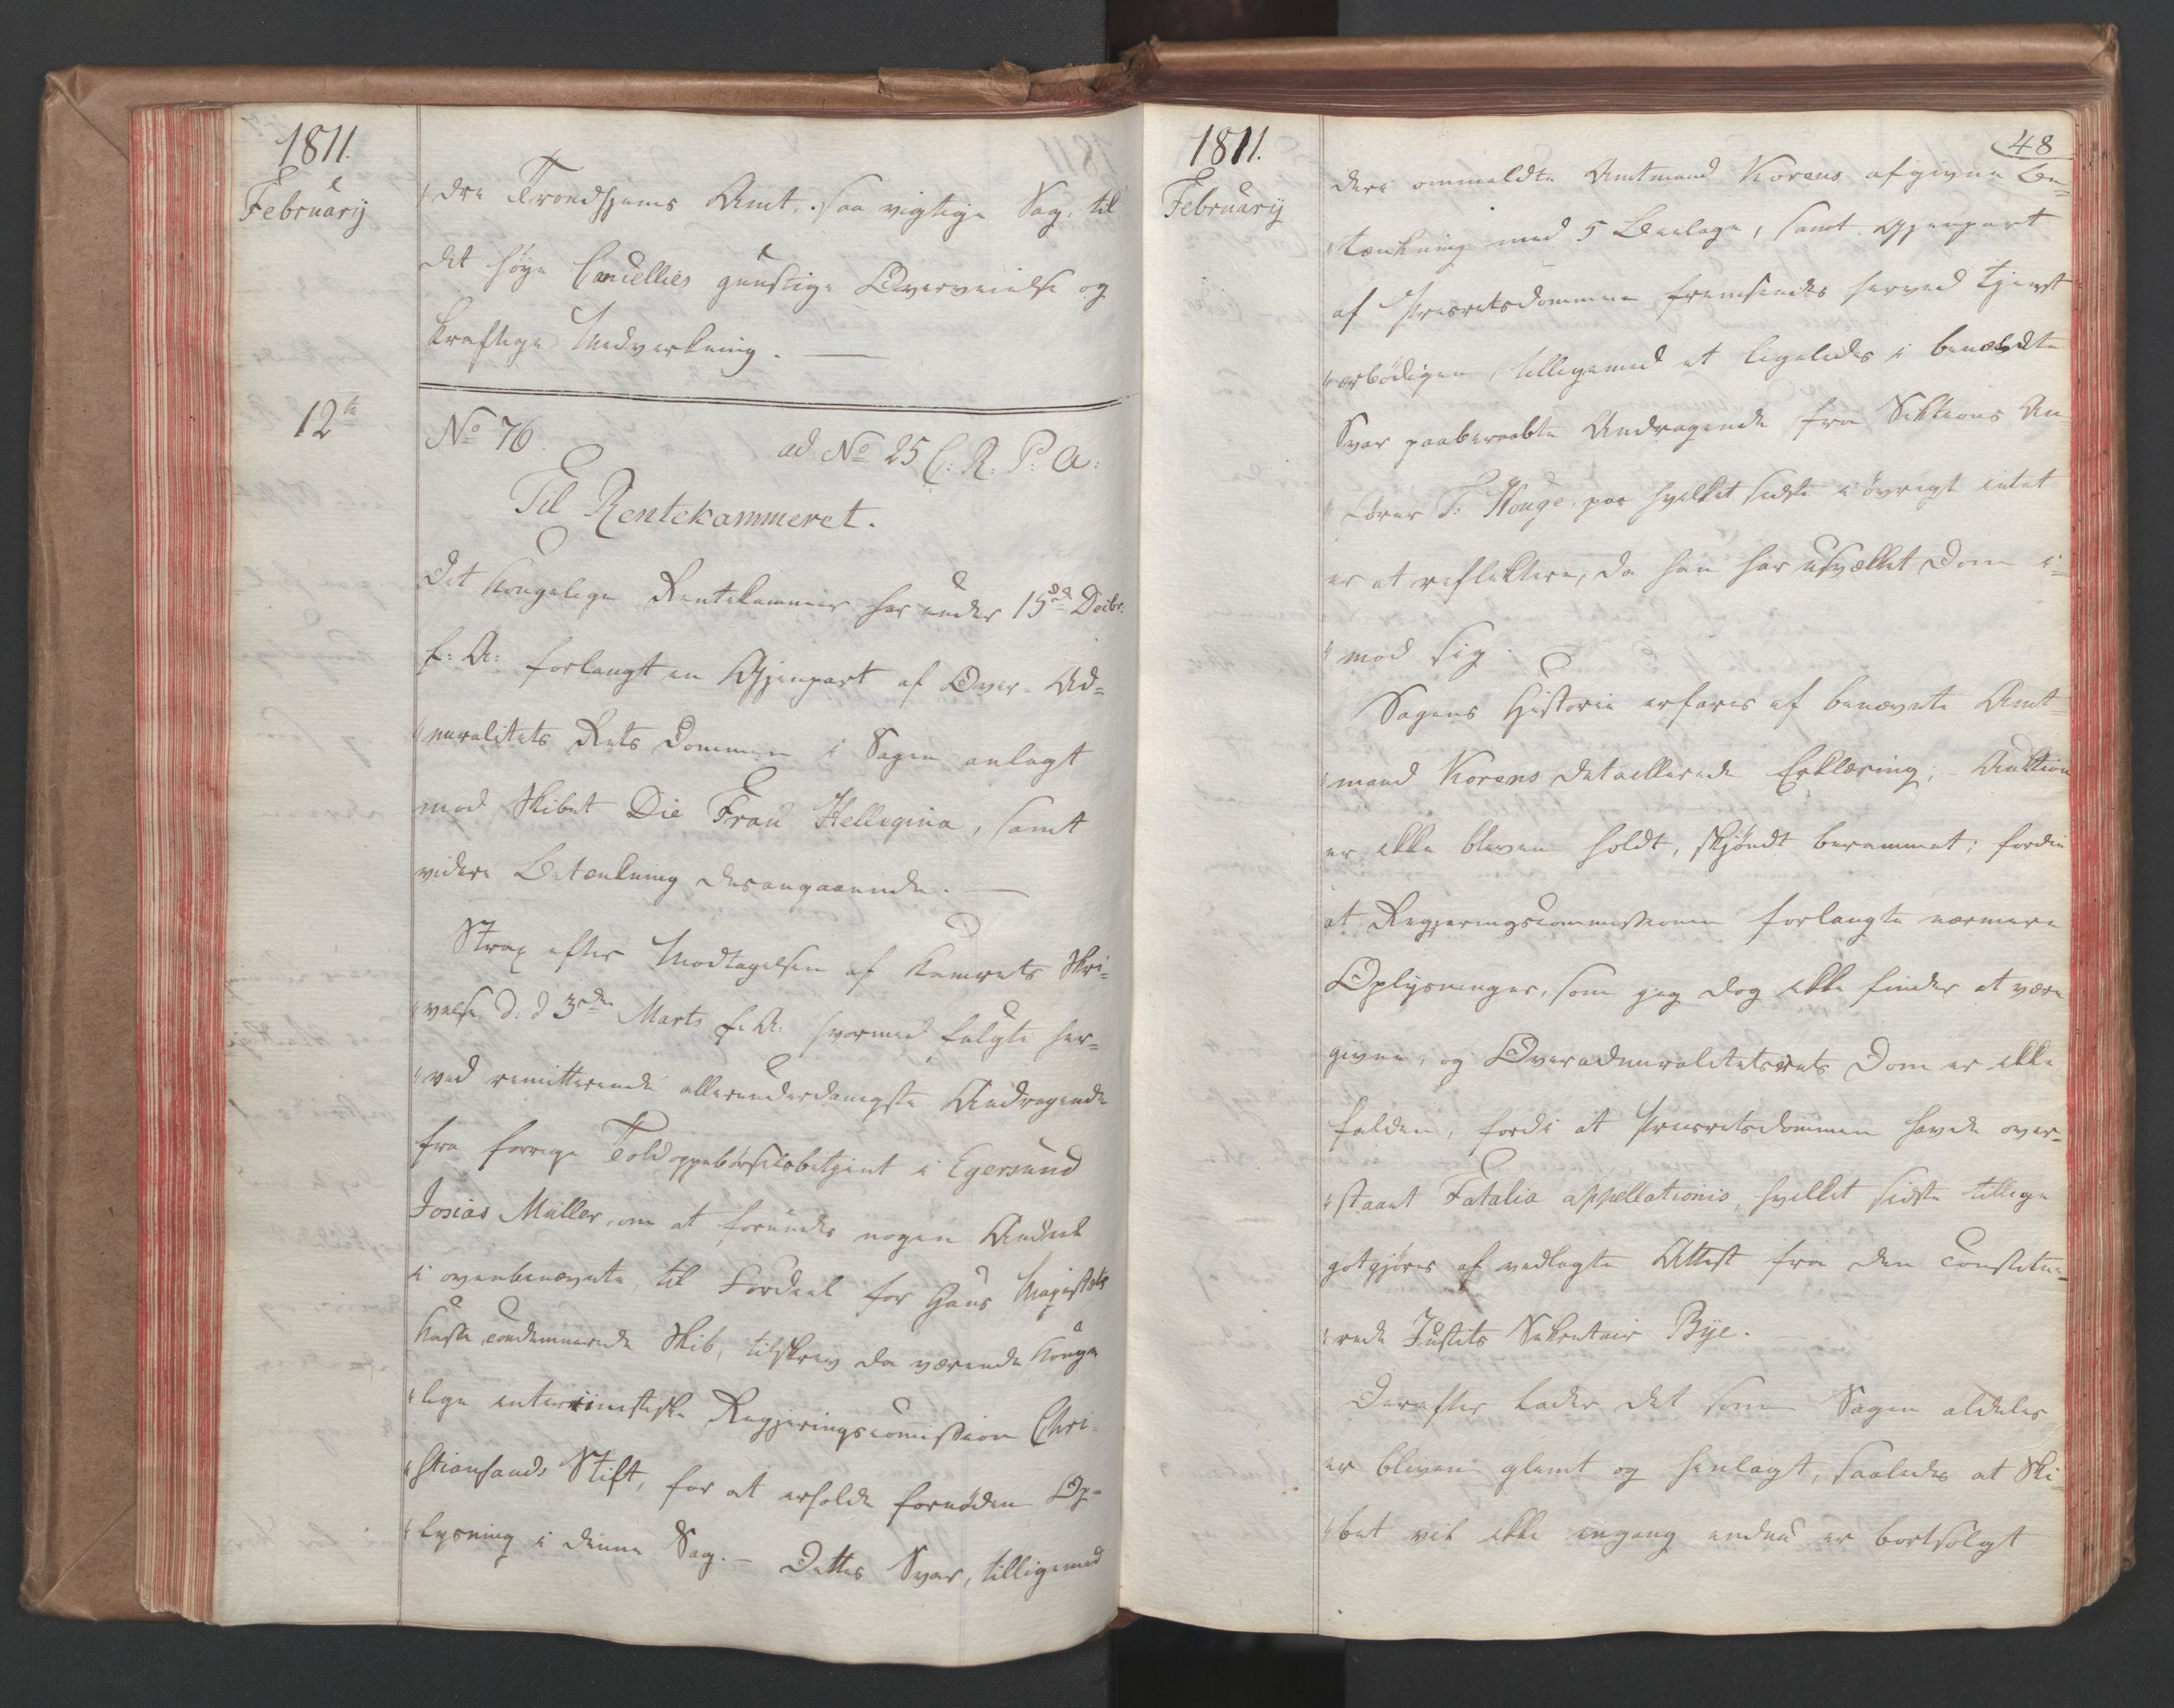 1811.
February
"dre Trondhjems Amt, saa vigtige Sag, til
det høye Cancellies gunstige Overveielse og
kraftige Medvirkning. —
12te
No 76.
ad No 25 C: R: P: A:
Til Rentekammeret.
Det kongelige Rentekammer har under 15de Decbr:
f: A: forlangt en Gjenpart af Over-Ad=
"miralitets Rets Dommen i Sagen anlagt
mod Skibet Die Frau Hellegina, samt
videre Betænkning desangaaende. —
Strax efter Modtagelsen af Kamrets Skri=
"velse d: d 3die Marts f: A: hvormed fulgte her=
"ved remitterende allerunderdanigste Andragende
fra forrige Toldoppebørselsbetjent i Egersund
Josias Müller, om at forundes nogen Andeel
i ovenbenævnte til Fordeel for Hans Majestets
Kasse condemnerede Skib, tilskrev da værende Konge
"lige interimistiske Regjeringscommission Chri-
"stiansands Stift, for at erholde fornøden Op=
"lysning i denne Sag. — Dettes Svar, tilligemed
1811.
February
48
deri ommeldte Amtmand Korens afgivne Be=
"tænkning med 5 Beilage, samt Gjenpart
af Priseretsdommen fremsendes herved tjenst
"ærbødigen, tilligemed et ligeledes i benævdte
Svar paaberaabte Andragende fra Auktions In
"cører T: Houge, paa hvilket sidste i øvrigt intet
er at reflektere, da han har udvællet Dom i=
"mod sig.
Sagens Historie erfares af benævnte Amt=
"mand Korens detaillerede Erklæring; Auktion
er ikke bleven holdt, skjøndt berammet; fordi
at Regjeringscommissionen forlangte nærmere
Oplysninger, som jeg dog ikke finder at være
givne, og Overadmiralitetsrets Dom er ikke
falden, fordi at Priseretsdommen havde over=
"staaet Fatalia appellationis, hvilket sidste tillige
godtgjøres af vedlagte Attest fra den constitue=
"rede Justits Sekretair Bye.
Derefter lader det som Sagen aldeles
er bleven glemt og henlagt, saaledes at Ski=
"bet vel ikke engang endnu er bortsolgt